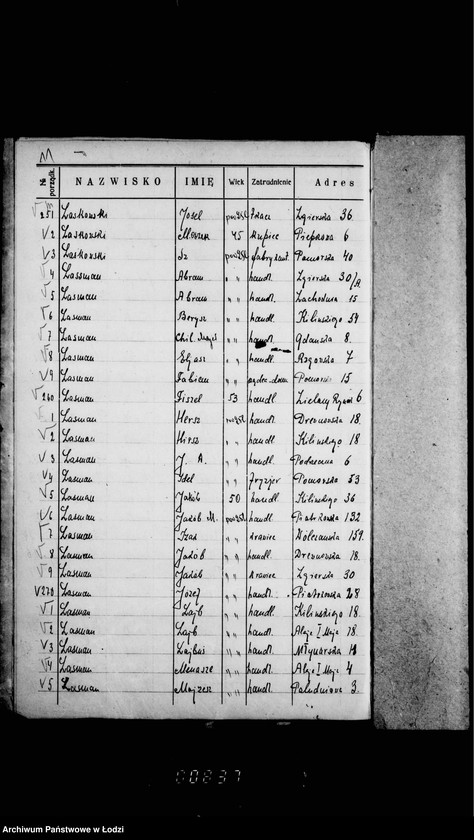 M
№ porządk. NAZWISKO IMIĘ Wiek Zatrudnienie Adres
251 Laskowski Josel pow. 25 l. tkacz Zgierska 36
2 Laskowski 45 kupiec Pieprzowa 6
3 Laskowski Iz pow. 25 l. fabrykant Pomorska 40
4 Lassman Abram " " handl. Zgierska 30/
5 Lasman Abram " " handl. Zachodnia 15
6 Lasman Berysz " " handl. Kilińskiego 54
7 Lasman Chil " " handl. Gdańska 8.
8 Lasman Eljasz " " handl. Rzgowska 7
9 Lasman Fabian " " Pomorska 15
260 Lasman Fiszel 53 handl. Zielony Rynek 6
1 Lasman Hersz pow. 25 l. handl. Drewnowska 18.
2 Lasman Hirsz " " handl. Kilińskiego 18.
3 Lasman J. A. " " handl. Podrzeczna 6
4 Lasman " " fryzjer Pomorska 53
5 Lasman Jakób 50 handl. Kilińskiego 36
6 Lasman Jakób M. pow. 25 l. handl. Piotrkowska 132
7 Lasman Izak " " krawiec Wólczańska 159.
8 Lasman Jakób " " handl. Drewnowska 18.
9 Lasman Jakób " " krawiec Zgierska 30
270 Lasman Józef " " handl. Piotrkowska 28
1 Lasman Lajb " " handl. Kilińskiego 18
2 Lasman Lajb " " handl. Aleje I Maja 18.
3 Lasman Lajbuś " " handl. Młynarska
4 Lasman Menasze " " handl. Aleje I Maja 4
5 Lasman Majżesz " " handl. Południowa 3.
00837
Archiwum Państwowe w Łodzi